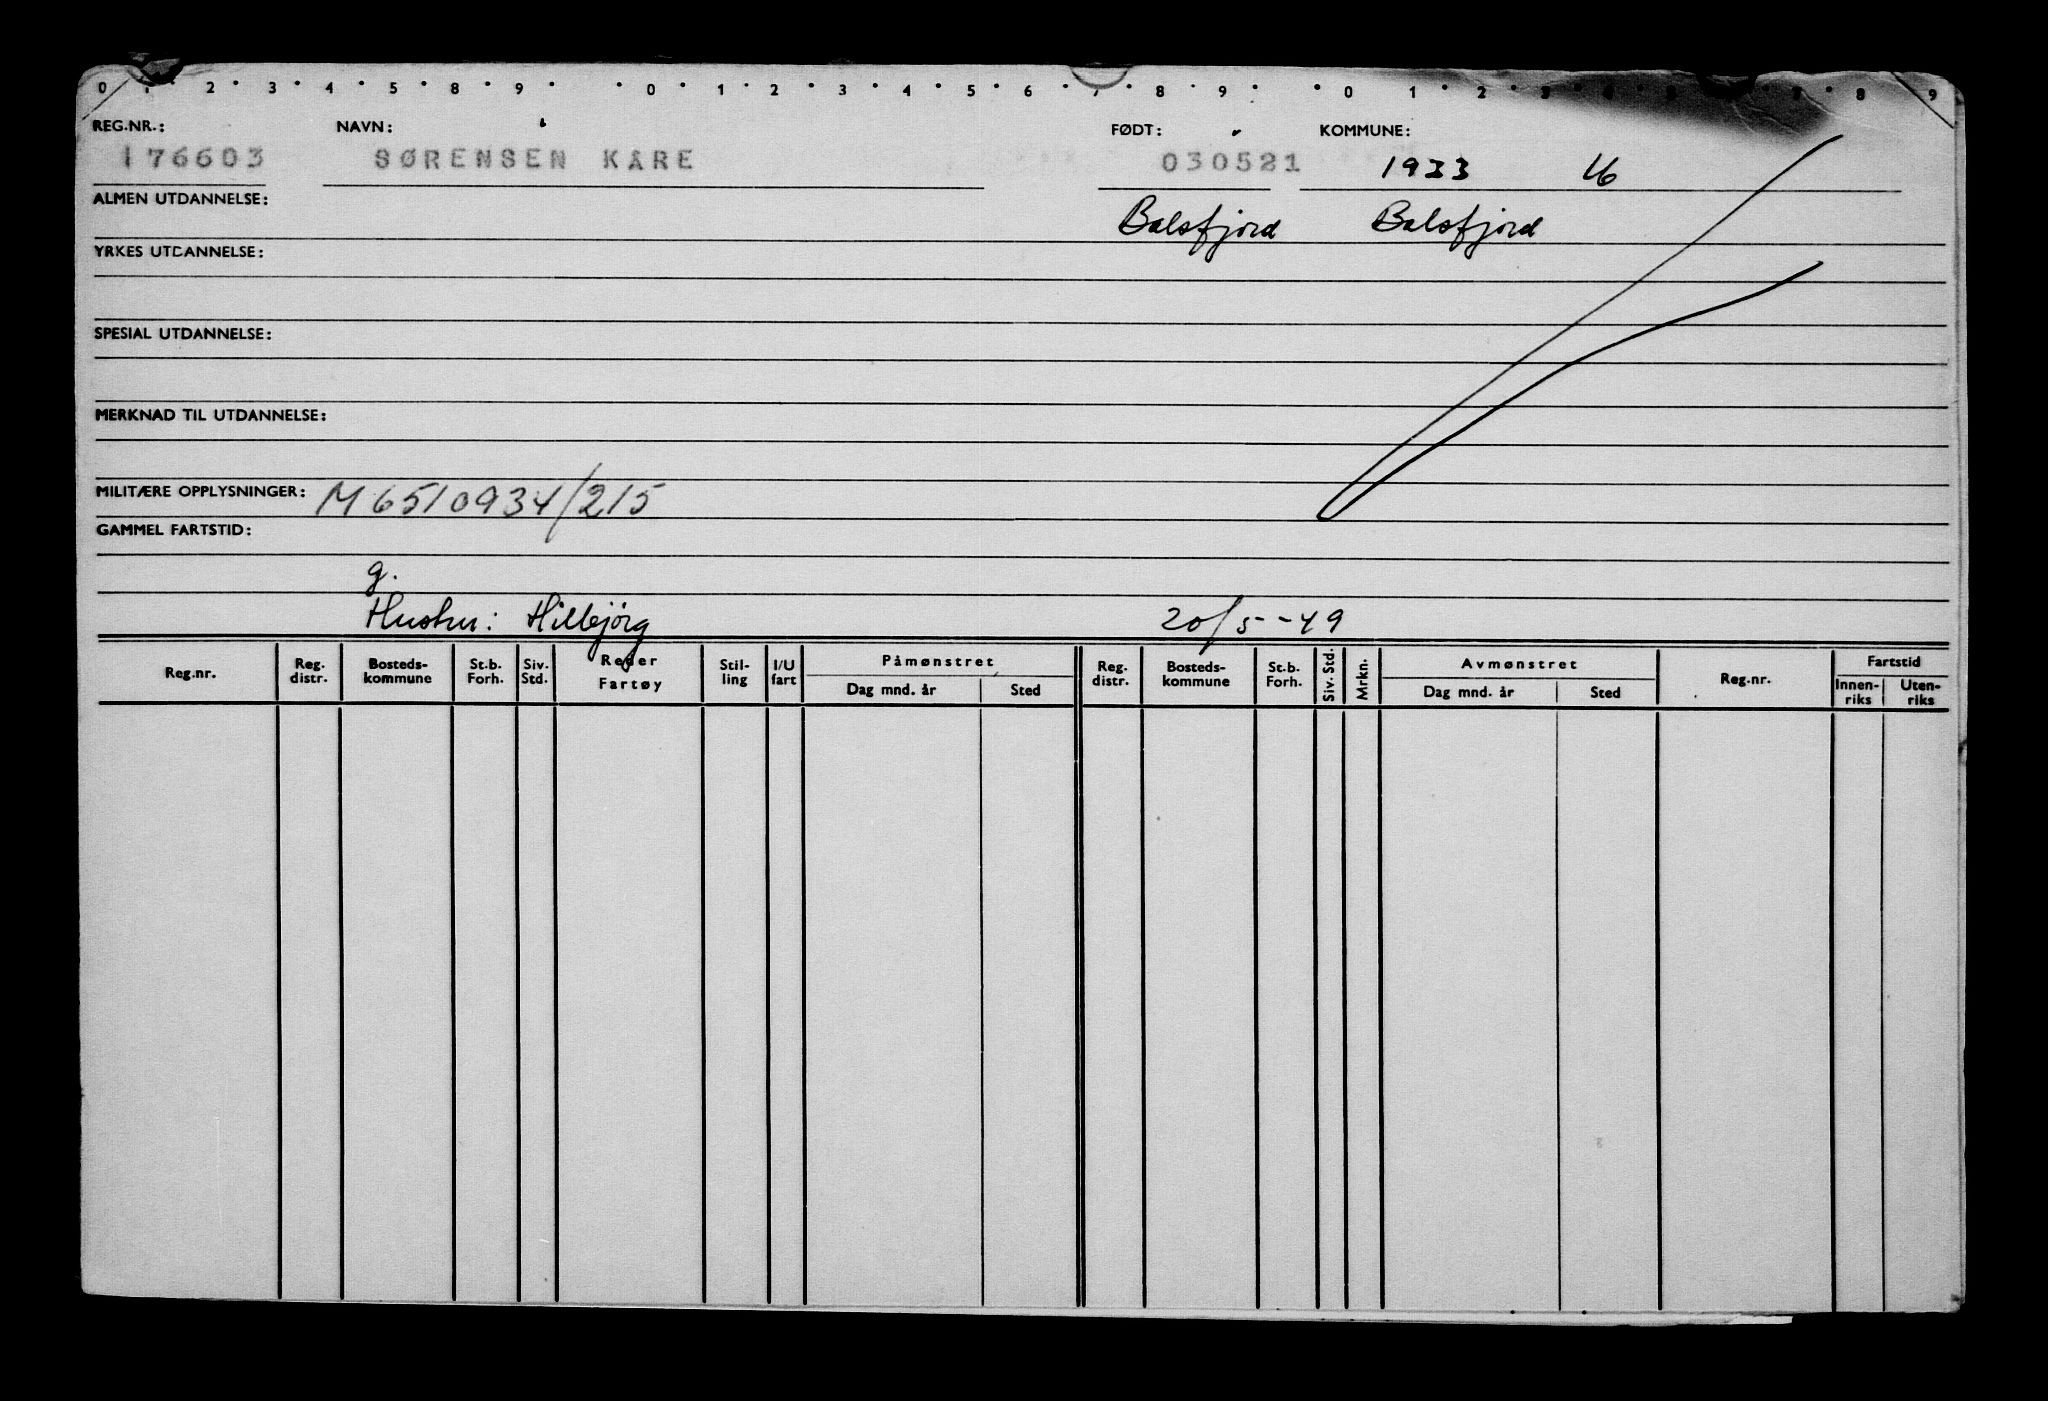 0 · 2 · 3 · 4 · 5 · 8 · 9 · · 0 · 1 · 2 · 3 · 4 · 5 · 6 · 7 · 8 · 9 · · 0 · 1 · 2 · 3 · 4 · 5 · 6 · 7 · 8 · 9
REG.NR.: NAVN: FØDT: KOMMUNE:
176603 SØRENSEN KARE 030521 1933 U6
ALMEN UTDANNELSE: Balsfjord Balsfjord
YRKES UTDANNELSE:
SPESIAL UTDANNELSE:
MERKNAD TIL UTDANNELSE:
MILITÆRE OPPLYSNINGER: M 6510934/215
GAMMEL FARTSTID:
g.
Hustru: Hillbjörg 20/5-49
Reg.nr. Reg. distr. Bosteds-kommune St.b. Forh. Siv. Std. Reder Fartøy Stil-ling I/U fart Påmønstret Dag mnd. år Sted Reg. distr. Bosteds-kommune St.b. Forh. Siv. Std. Mrkn. Avmønstret Dag mnd. år Sted Reg.nr. Fartstid Innen-riks Uten-riks